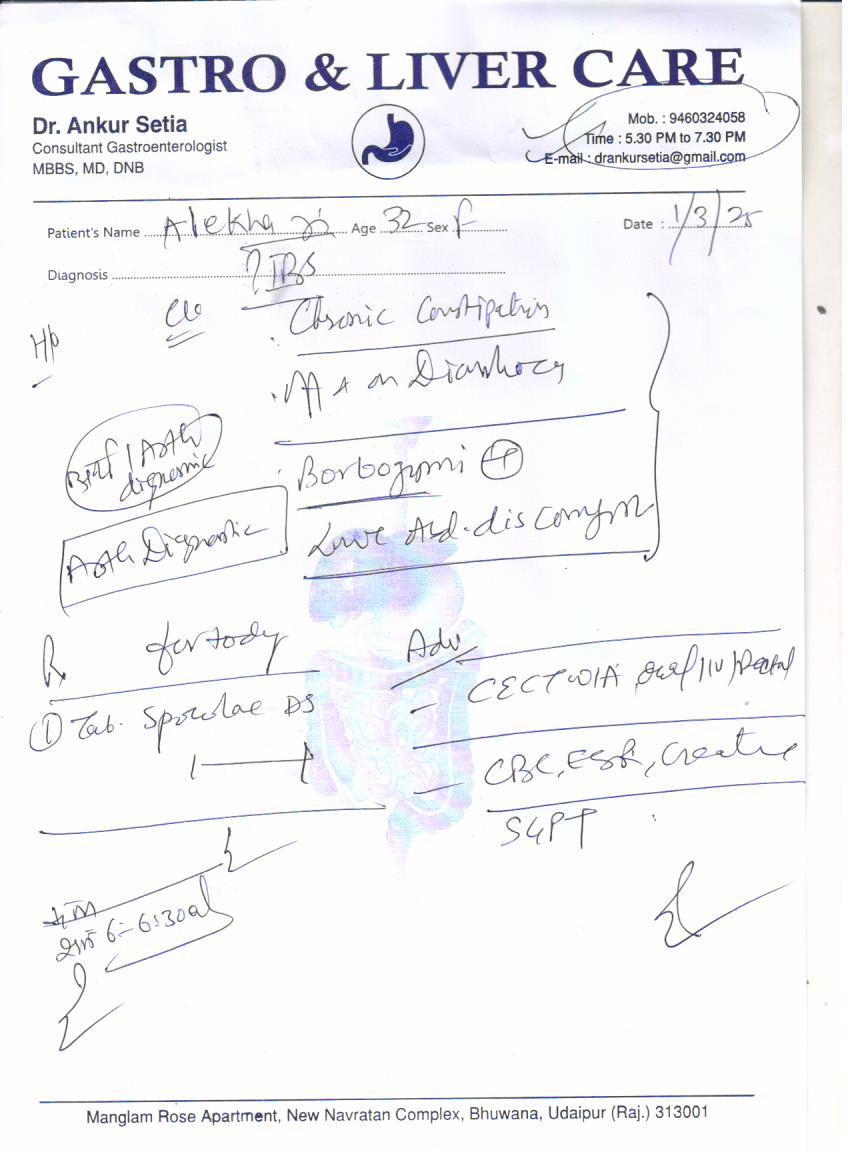 GASTRO & LIVER CARE
Dr. Ankur Setia
Consultant Gastroenterologist
MBBS, MD, DNB
Mob. : 9460324058
Time : 5.30 PM to 7.30 PM
E-mail : drankursetia@gmail.com
Patient's Name Alekha Age 32 Sex F Date : 1/3/25
Diagnosis ? IBS
H/o C/o Chronic Constipation
on Diarrhoea
Borbogymi +
Abd. discomfort
Diagnostic
Rx for today
Adv
CECT W/A oral/IV/Rectal
① Tab. DS
1 — 1
CBC, ESR, Creatine
SGPT
6:-6:30
Manglam Rose Apartment, New Navratan Complex, Bhuwana, Udaipur (Raj.) 313001